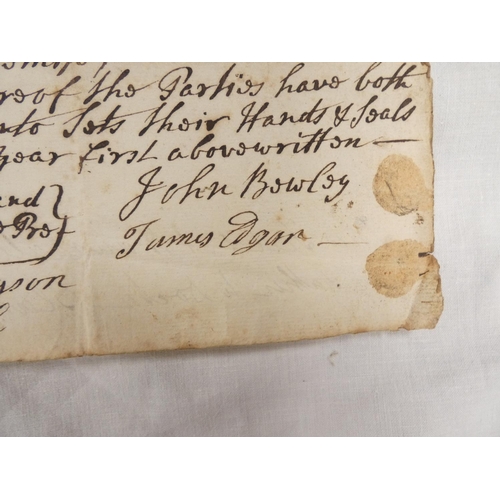 reof the Parties have both
nto Sets their Hands & Seals
Year first abovewritten —
and } John Bewley
e Pre} James Edgar —
yson